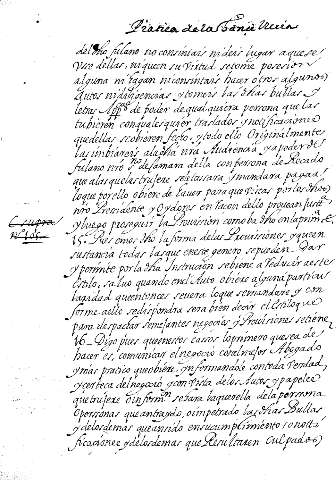 Pratica de la Chancilleria
del dho fulano no consintais ni deis lugar a que se
use dellas, ni que en su virtud se tome posesion
alguna ni hagan ni consintais hacer otros algunos
autos ni diligencias y tomeis las dhas bullas y
letras App.cas de poder de qualquiera persona que las
tubieren con qualesquier traslados y notificaciones
que dellas se obieren fecho, y todo ello originalmente
las imbiareis a la dha nra Audiencia y a poder de
fulano nro de Camara della con persona de Recado
que a las que las trujere se le tasara y mandara pagar
lo que por ello obiere de haver para que vistas por los dhos
nro Presidente y Oydores en razon dello provean justa
y luego proseguir la Provission como ba dho en la prim.a
C. supra
15. Esta es dho la forma de las Provissiones y que en
sustancia todas las que en este genero se pueden dar
y permite por la dha Instrucion se biene a reducir a este
estilo, salvo quando en el Auto obiere alguna particu
laridad que entonces se vera lo que se mandare y con
forme a ello se dispondra sera bien decir el estilo que
para despachar semejantes negocios y Provisiones se tiene
16. Digo pues que en estos casos lo primero que se a de
hacer es, comunicar el negocio con algunos Abogado
y mas pratico que obiere, informandole con toda verdad,
y certeza del negocio y con vista de los Autos y papeles
que trujere o inform.on se hara la querella de la persona
o personas que an traydo, o impetrado las dhas Bullas
y de los demas que an sido en su cumplimiento o noti
ficaciones y de los demas que Resultaren culpados